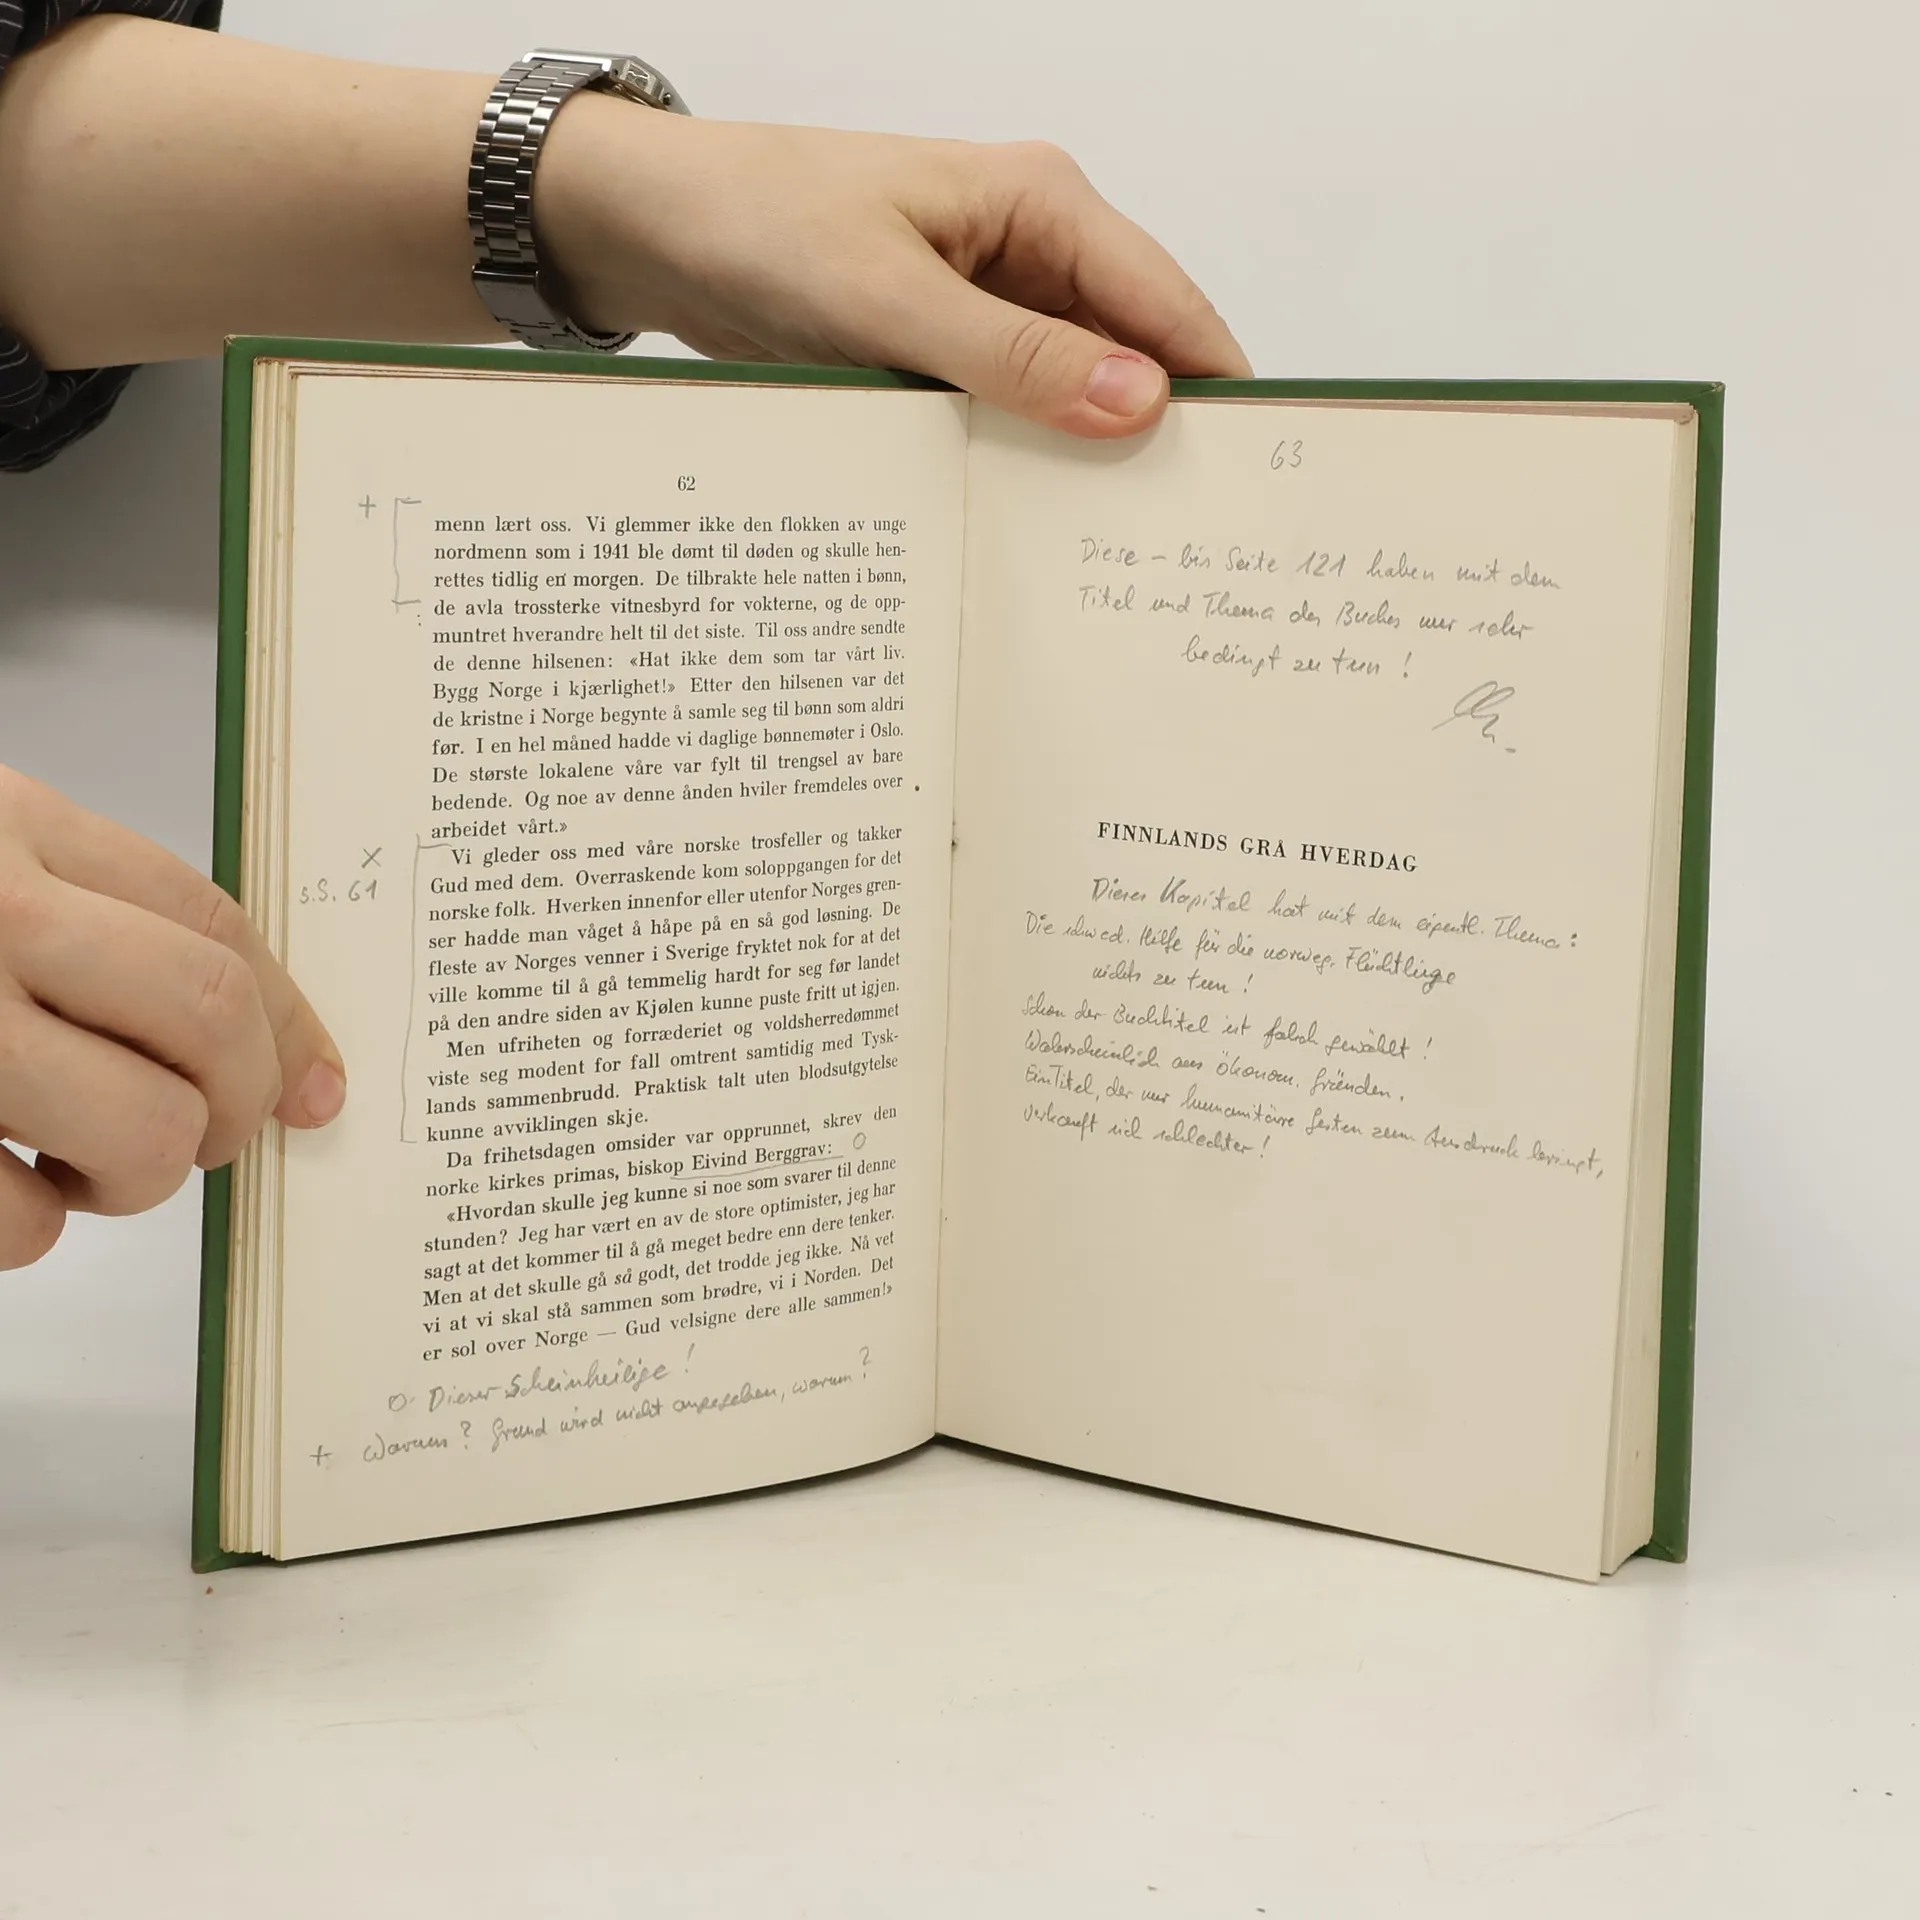 62
+
menn lært oss. Vi glemmer ikke den flokken av unge
nordmenn som i 1941 ble dømt til døden og skulle hen-
rettes tidlig en morgen. De tilbrakte hele natten i bønn,
de avla trossterke vitnesbyrd for vokterne, og de opp-
muntret hverandre helt til det siste. Til oss andre sendte
de denne hilsenen: «Hat ikke dem som tar vårt liv.
Bygg Norge i kjærlighet!» Etter den hilsenen var det
de kristne i Norge begynte å samle seg til bønn som aldri
før. I en hel måned hadde vi daglige bønnemøter i Oslo.
De største lokalene våre var fylt til trengsel av bare
bedende. Og noe av denne ånden hviler fremdeles over
arbeidet vårt.»
x
s.S. 61
Vi gleder oss med våre norske trosfeller og takker
Gud med dem. Overraskende kom soloppgangen for det
norske folk. Hverken innenfor eller utenfor Norges gren-
ser hadde man våget å håpe på en så god løsning. De
fleste av Norges venner i Sverige fryktet nok for at det
ville komme til å gå temmelig hardt for seg før landet
på den andre siden av Kjølen kunne puste fritt ut igjen.
Men ufriheten og forræderiet og voldsherredømmet
viste seg modent for fall omtrent samtidig med Tysk-
lands sammenbrudd. Praktisk talt uten blodsutgytelse
kunne avviklingen skje.
Da frihetsdagen omsider var opprunnet, skrev den
norke kirkes primas, biskop Eivind Berggrav: O
«Hvordan skulle jeg kunne si noe som svarer til denne
stunden? Jeg har vært en av de store optimister, jeg har
sagt at det kommer til å gå meget bedre enn dere tenker.
Men at det skulle gå så godt, det trodde jeg ikke. Nå vet
vi at vi skal stå sammen som brødre, vi i Norden. Det
er sol over Norge — Gud velsigne dere alle sammen!»
O Dieser Scheinheilige!
+ Warum? Grund wird nicht angegeben, warum?
63
Diese – bis Seite 121 haben mit dem
Titel und Thema des Buches nur sehr
bedingt zu tun!
FINNLANDS GRÅ HVERDAG
Dieses Kapitel hat mit dem eigentl. Thema:
Die schwed. Hilfe für die norweg. Flüchtlinge
nichts zu tun!
Schon der Buchtitel ist falsch gewählt!
Wahrscheinlich aus ökonom. Gründen.
Ein Titel, der nur humanitäre Gesten zum Ausdruck bringt,
verkauft sich schlechter!